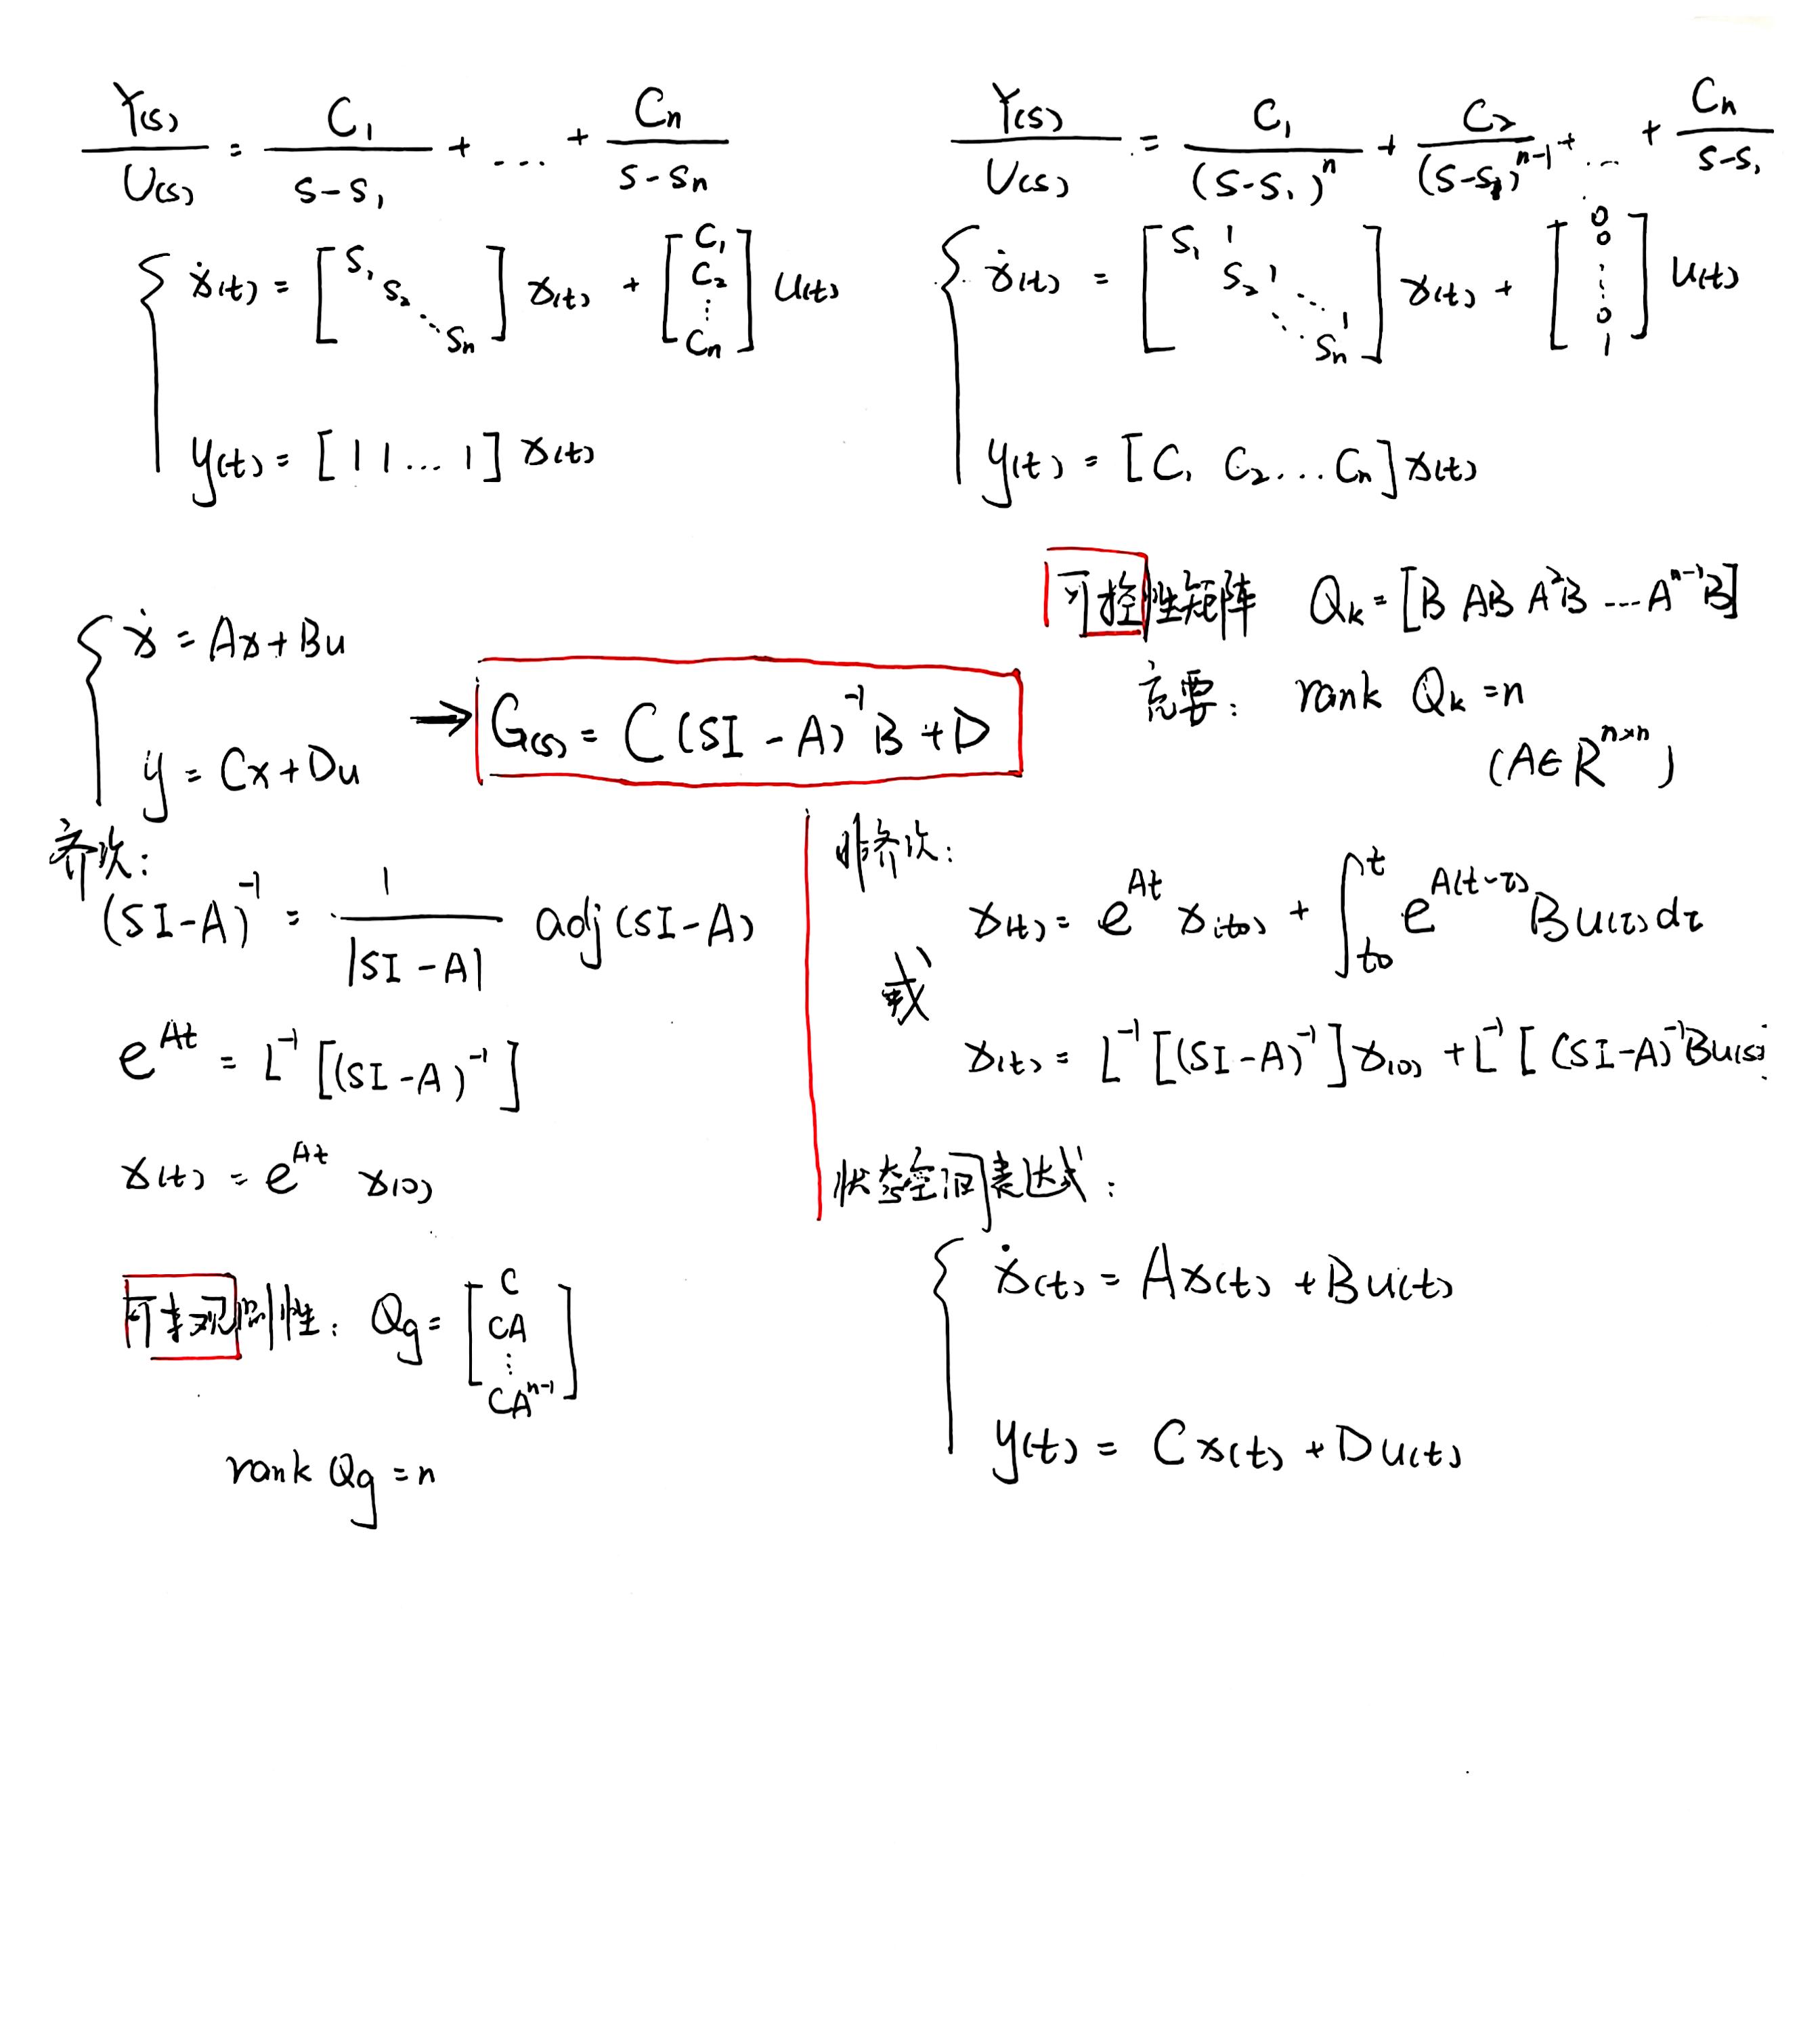 Y(s)/U(s) = C₁/(s-s₁) + ... + Cn/(s-sn)
ẋ(t) = [s₁ s₂ ⋱ sn] x(t) + [C₁ C₂ ⋮ Cn] u(t)
y(t) = [1 1 ... 1] x(t)
Y(s)/U(s) = C₁/(s-s₁)ⁿ + C₂/(s-s₁)ⁿ⁻¹ + ... + Cn/(s-s₁)
ẋ(t) = [s₁ 1 s₂ 1 ⋱ ⋱ 1 sn] x(t) + [0 0 ⋮ 0 1] u(t)
y(t) = [C₁ C₂ ... Cn] x(t)
可控性矩阵 Qk = [B AB A²B ... Aⁿ⁻¹B]
充要: rank Qk = n
(A∈Rⁿˣⁿ)
ẋ = Ax + Bu
y = Cx + Du
→ G(s) = C(SI-A)⁻¹B + D
齐次:
(SI-A)⁻¹ = 1/|SI-A| adj(SI-A)
e^At = L⁻¹[(SI-A)⁻¹]
x(t) = e^At x(0)
非齐次:
x(t) = e^At x(t0) + ∫_t0^t e^A(t-τ) Bu(τ)dτ
或
x(t) = L⁻¹[(SI-A)⁻¹]x(0) + L⁻¹[(SI-A)⁻¹Bu(s)
状态空间表达式:
ẋ(t) = Ax(t) + Bu(t)
y(t) = Cx(t) + Du(t)
可观测性: Qg = [C CA ⋮ CAⁿ⁻¹]
rank Qg = n